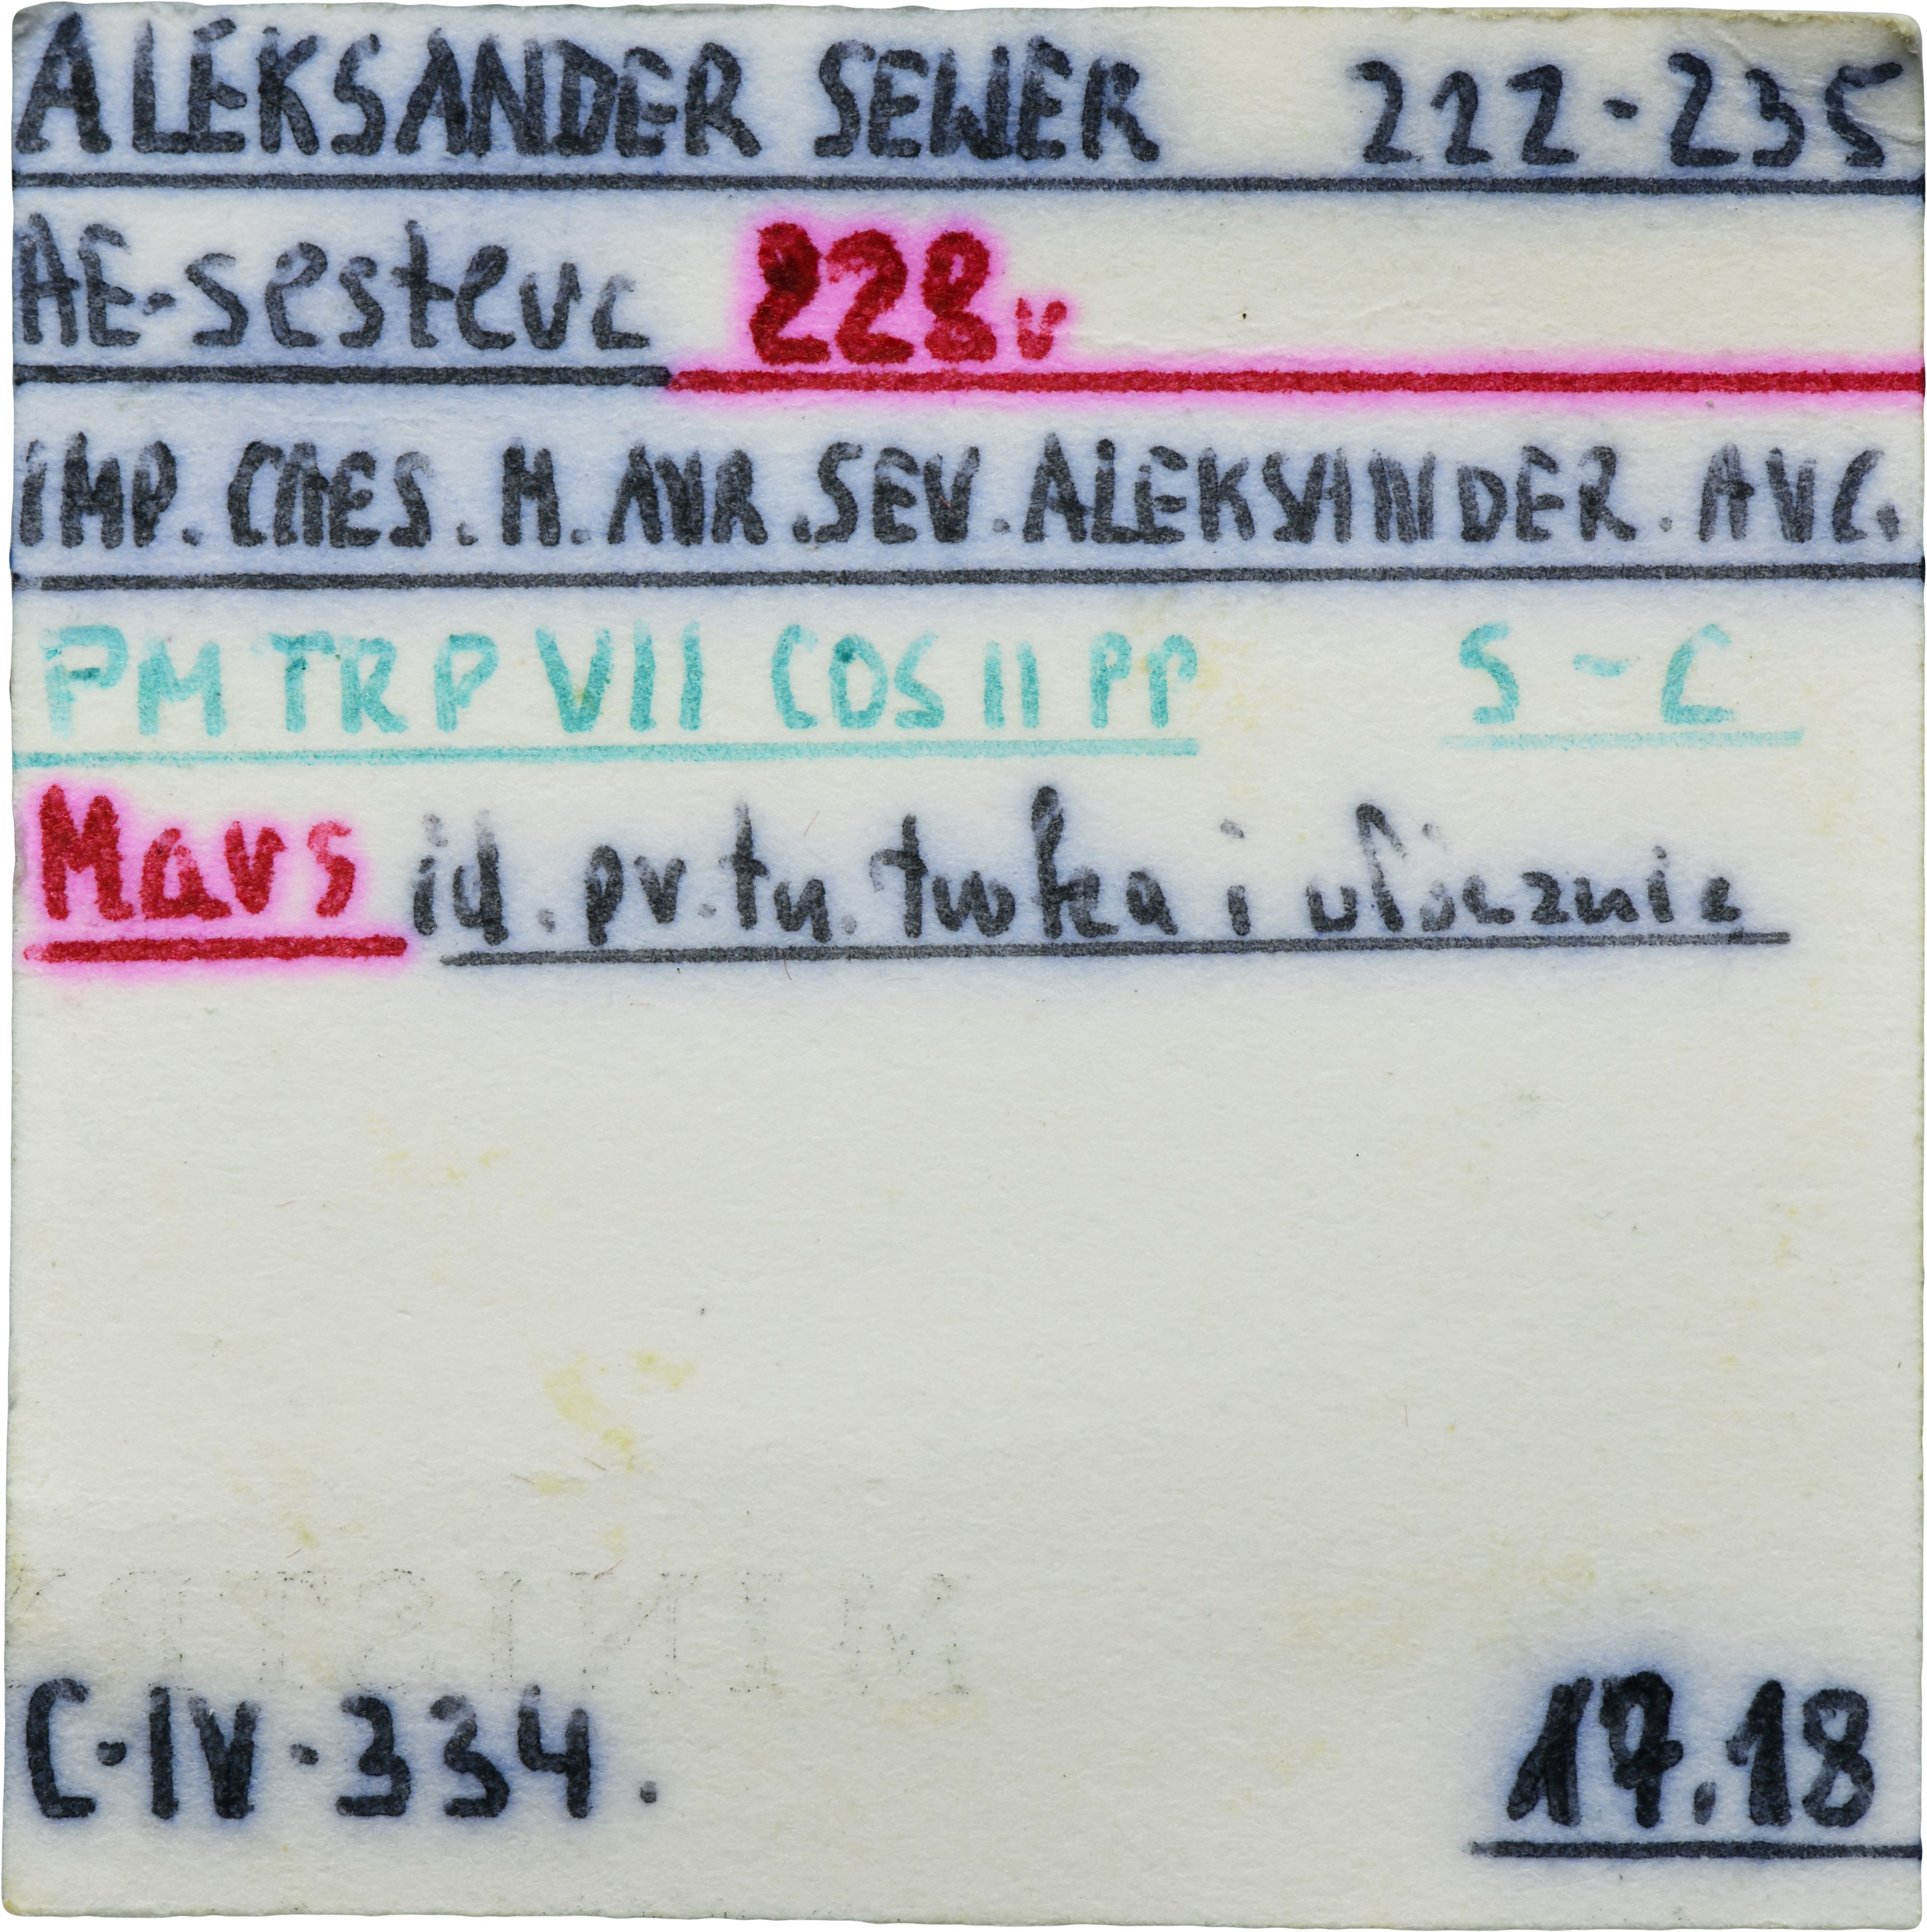 ALEKSANDER SEWER 222-235
AE-sesterc 228r
IMP. CAES. M. AVR. SEV. ALEKSANDER. AVG.
PM TR P VII COS II PP S-C
Mars id. pr. trz. tarka i włócznię
C-IV-334.
17.18